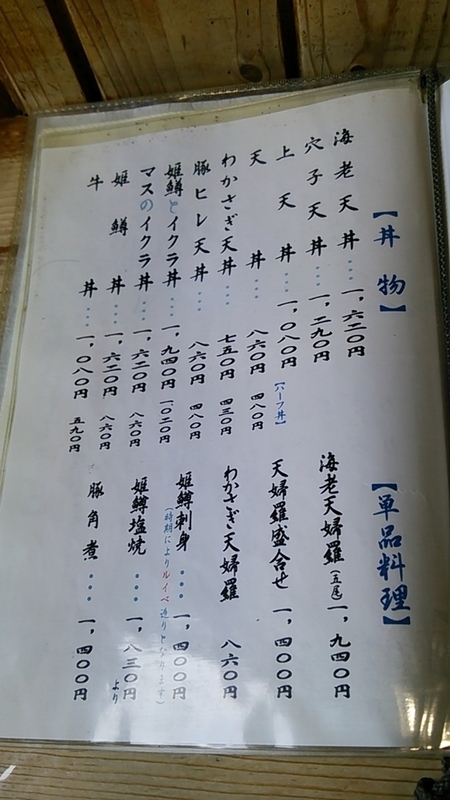 【丼物】
海老天丼・・・一、六二〇円
穴子天丼・・・一、二九〇円
上天丼・・・一、〇八〇円
【ハーフ丼】
天丼・・・八六〇円 四八〇円
わかさぎ天丼・・・七五〇円 四三〇円
豚ヒレ天丼・・・八六〇円 四八〇円
姫鱒とイクラ丼・・・一、九四〇円 一〇二〇円
マスのイクラ丼・・・一、六二〇円 八六〇円
姫鱒丼・・・一、六二〇円 八六〇円
牛丼・・・一、〇八〇円 五九〇円
【単品料理】
海老天婦羅(五尾)一、九四〇円
天婦羅盛合せ 一、四〇〇円
わかさぎ天婦羅 八六〇円
姫鱒刺身・・・一、四〇〇円
(時期によりルイベ造りとなります)
姫鱒塩焼・・・一、八三〇円より
豚角煮・・・一、四〇〇円